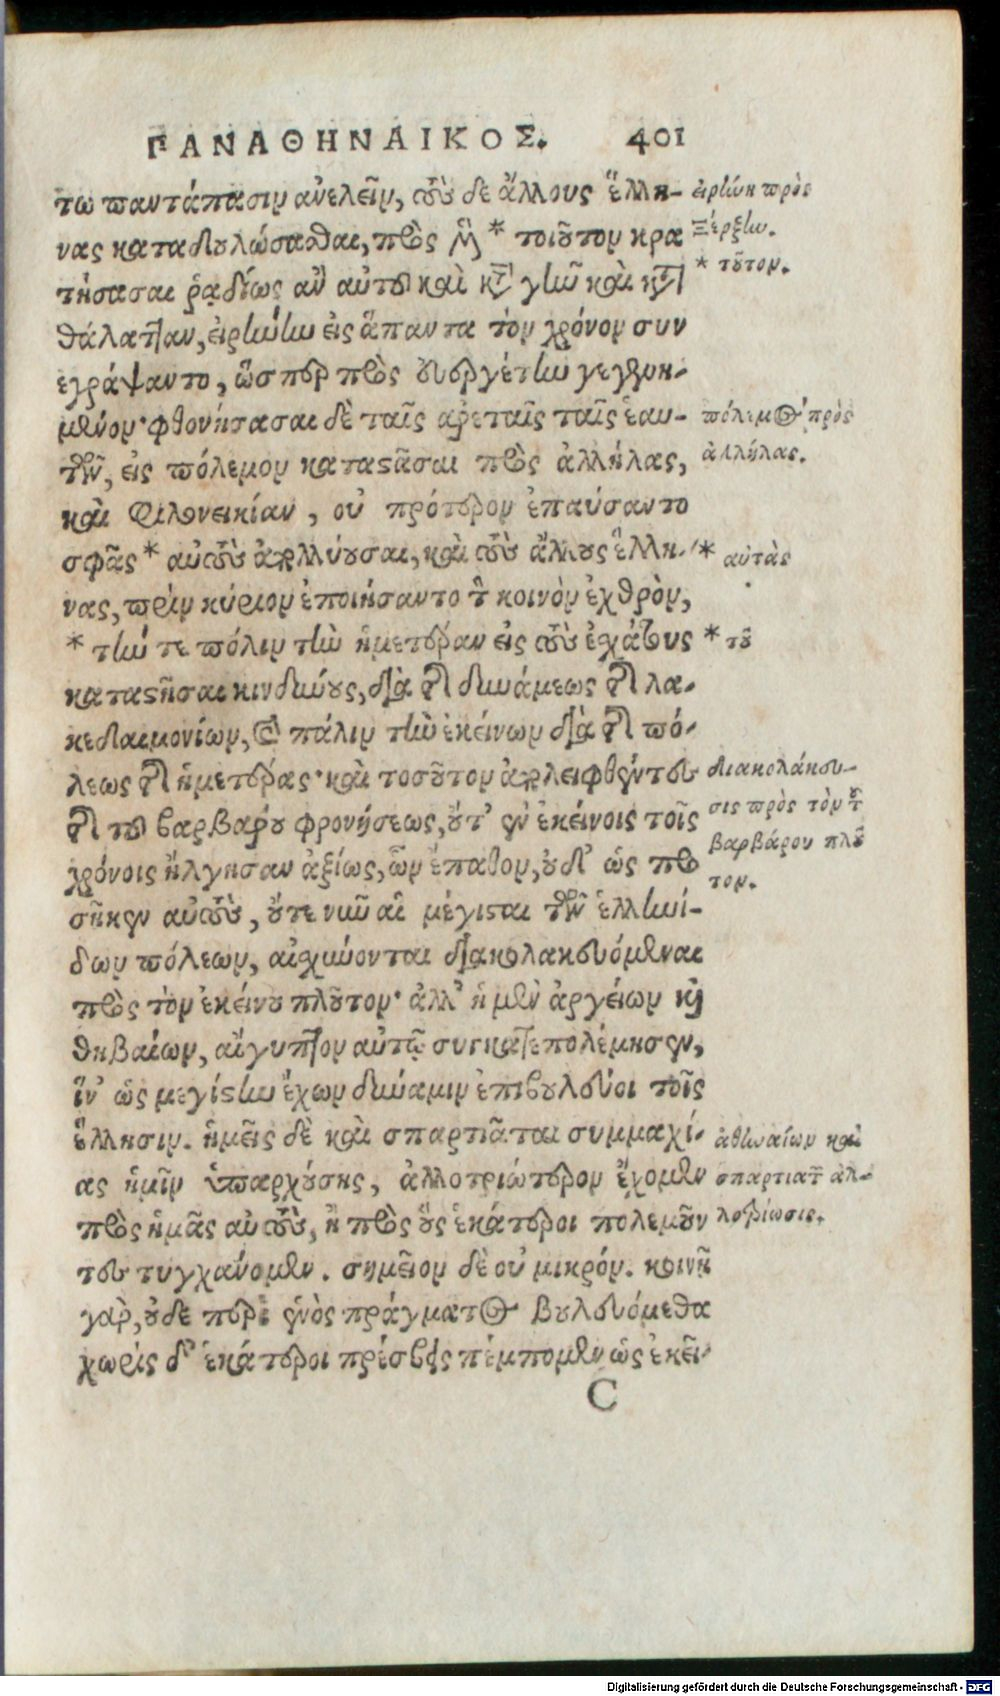 ΠΑΝΑΘΗΝΑΙΚΟΣ. 401
τω παντάπασιν ἀνελεῖν, τοὺς δὲ ἄλλους ἕλλη-
νας καταδουλώσασθαι, πρὸς μὲν * τοιοῦτον κρα
τήσασαι ῥᾳδίως ἂν αὐτοῦ καὶ κατὰ γῆν καὶ κατὰ
θάλατταν, εἰρήνην εἰς ἅπαντα τὸν χρόνον συν
εγράψαντο, ὥσπερ πρὸς εὐεργέτην γεγενη-
μένον· φθονήσασαι δὲ ταῖς ἀρεταῖς ταῖς ἑαυ-
τῶν, εἰς πόλεμον καταστᾶσαι πρὸς ἀλλήλας,
καὶ φιλονεικίαν, οὐ πρότερον ἐπαύσαντο
σφᾶς * αὐτοὺς ἀπολλύουσαι, καὶ τοὺς ἄλλους ἕλλη-
νας, πρὶν κύριον ἐποιήσαντο τὸν κοινὸν ἐχθρὸν,
* τήν τε πόλιν τὴν ἡμετέραν εἰς τοὺς ἐσχάτους
καταστῆσαι κινδύνους, διὰ τῆς δυνάμεως τῆς λα-
κεδαιμονίων, καὶ πάλιν τὴν ἐκείνων διὰ τῆς πό-
λεως τῆς ἡμετέρας· καὶ τοσοῦτον ἀπολειφθέντες
τῆς τοῦ βαρβάρου φρονήσεως, οὔτ' ἐν ἐκείνοις τοῖς
χρόνοις ἤλγησαν ἀξίως, ὧν ἔπαθον, οὐδ' ὡς προ
σῆκεν αὐτοὺς, οὔτε νῦν αἱ μέγισται τῶν ἑλληνί-
δων πόλεων, αἰσχύνονται διακολακευόμεναι
πρὸς τὸν ἐκείνου πλοῦτον· ἀλλ' ἡ μὲν ἀργείων καὶ
θηβαίων, αἴγυπτον αὐτῷ συγκατεπολέμησεν,
ἵν' ὡς μεγίστην ἔχων δύναμιν ἐπιβουλεύοι τοῖς
ἕλλησιν. ἡμεῖς δὲ καὶ σπαρτιᾶται συμμαχί-
ας ἡμῖν ὑπαρχούσης, ἀλλοτριώτερον ἔχομεν
πρὸς ἡμᾶς αὐτοὺς, ἢ πρὸς οὓς ἑκάτεροι πολεμοῦν
τες τυγχάνομεν. σημεῖον δὲ οὐ μικρόν. κοινῇ
γὰρ, οὐδὲ περὶ ἑνὸς πράγματος βουλευόμεθα
χωρὶς δ' ἑκάτεροι πρέσβεις πέμπομεν ὡς ἐκεῖ-
C
εἰρήνη πρὸς
Ξέρξην.
* τοῦτον.
πόλεμος πρὸς
ἀλλήλας.
* αὐτὰς
* τοῦ
διακολάκευ-
σις πρὸς τὸν τοῦ
βαρβάρου πλοῦ
τον.
ἀθηναίων καὶ
σπαρτιατῶν ἀλ-
λοτρίωσις.
Digitalisierung gefördert durch die Deutsche Forschungsgemeinschaft - DFG